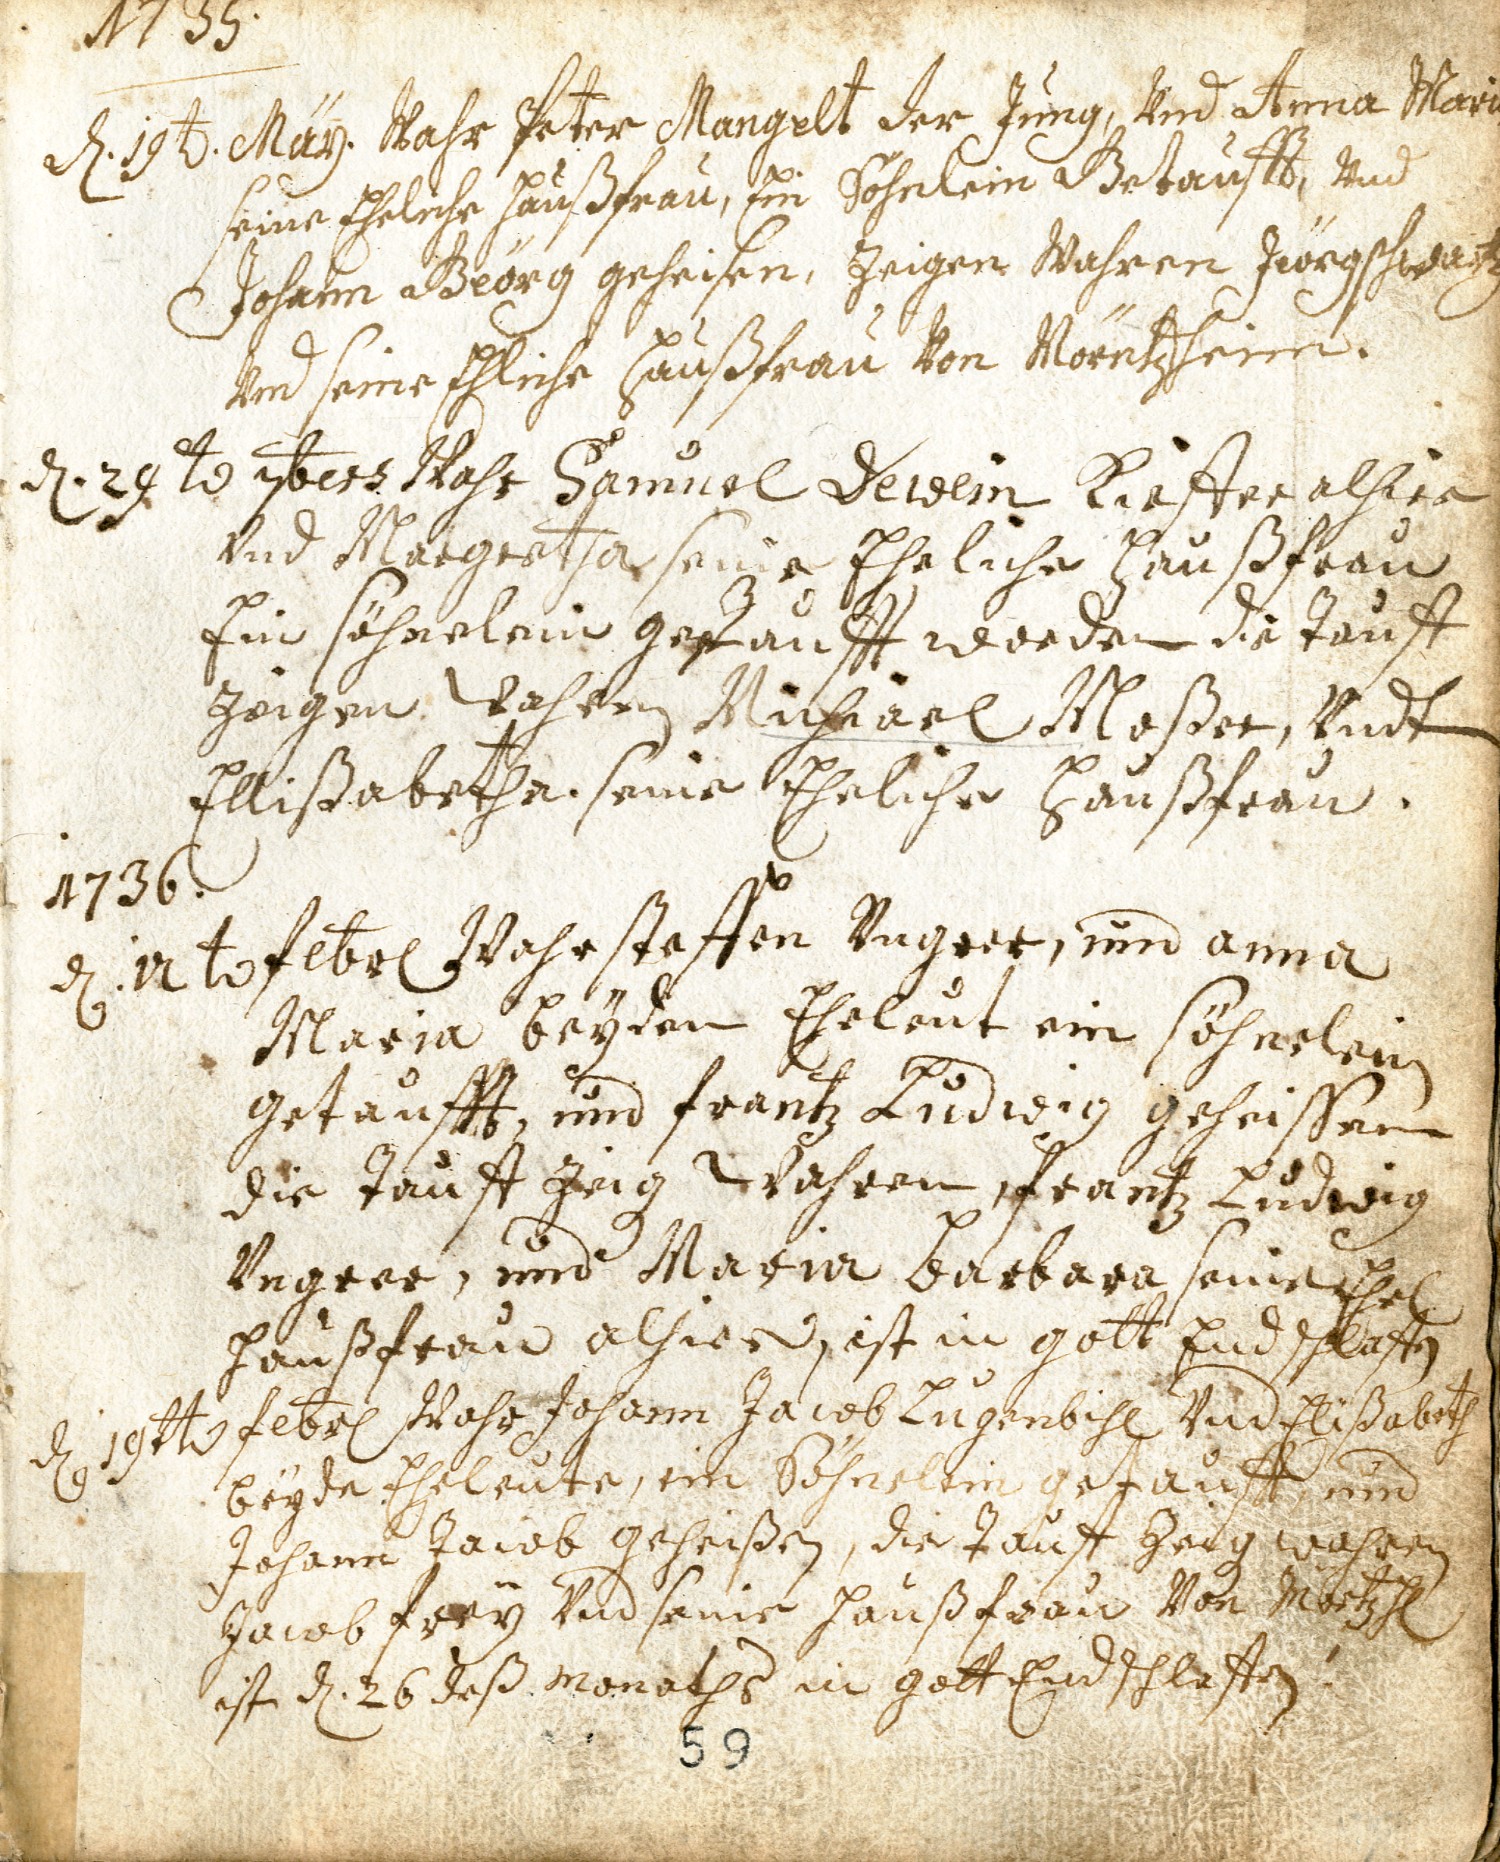 1735.
d. 19t. Maÿ. Wahr Peter Mangelt der Jung, Vnd Anna Maria
seine Eheliche Haußfrau, Ein Söhnlein Getaufft, Vnd
Johann Georg geheisen, Zeigen Wahren Jörg Schwartz
Vnd seine Ehliche Haußfrau Von Mörtzheim.
d. 24 to 7bers Wahr Samuel Kieffer alhier
Vnd Margretha seine Eheliche Haußfrau
Ein söhnelein getaufft worden die Tauff
Zeigen Wahren Michäel Moßer, Vndt
Ellißabetha seine Eheliche Haußfrau.
1736.
d. 12 to febrl Wahr steffen Vngrer, und anna
Maria beyden Eheleut ein söhnelein
getaufft, und frantz Ludwig geheissen
die Tauff Zeig Wahren, frantz Ludwig
Vngrer, und Maria barbara seine Ehel
haußfrau alhier, ist in gott Endschlaffen
d 19tto febrl Wahr Johann Jacob Lugenbihl Vnd Elißabeth
beyde Eheleute, ein Söhnelein getaufft, und
Johann Jacob geheißen, die Tauff Zeig wahren
Jacob freÿ Vnd seine haußfrau Von Mörtzh
ist d. 26 deß Monaths in gott Endschlaffen
59